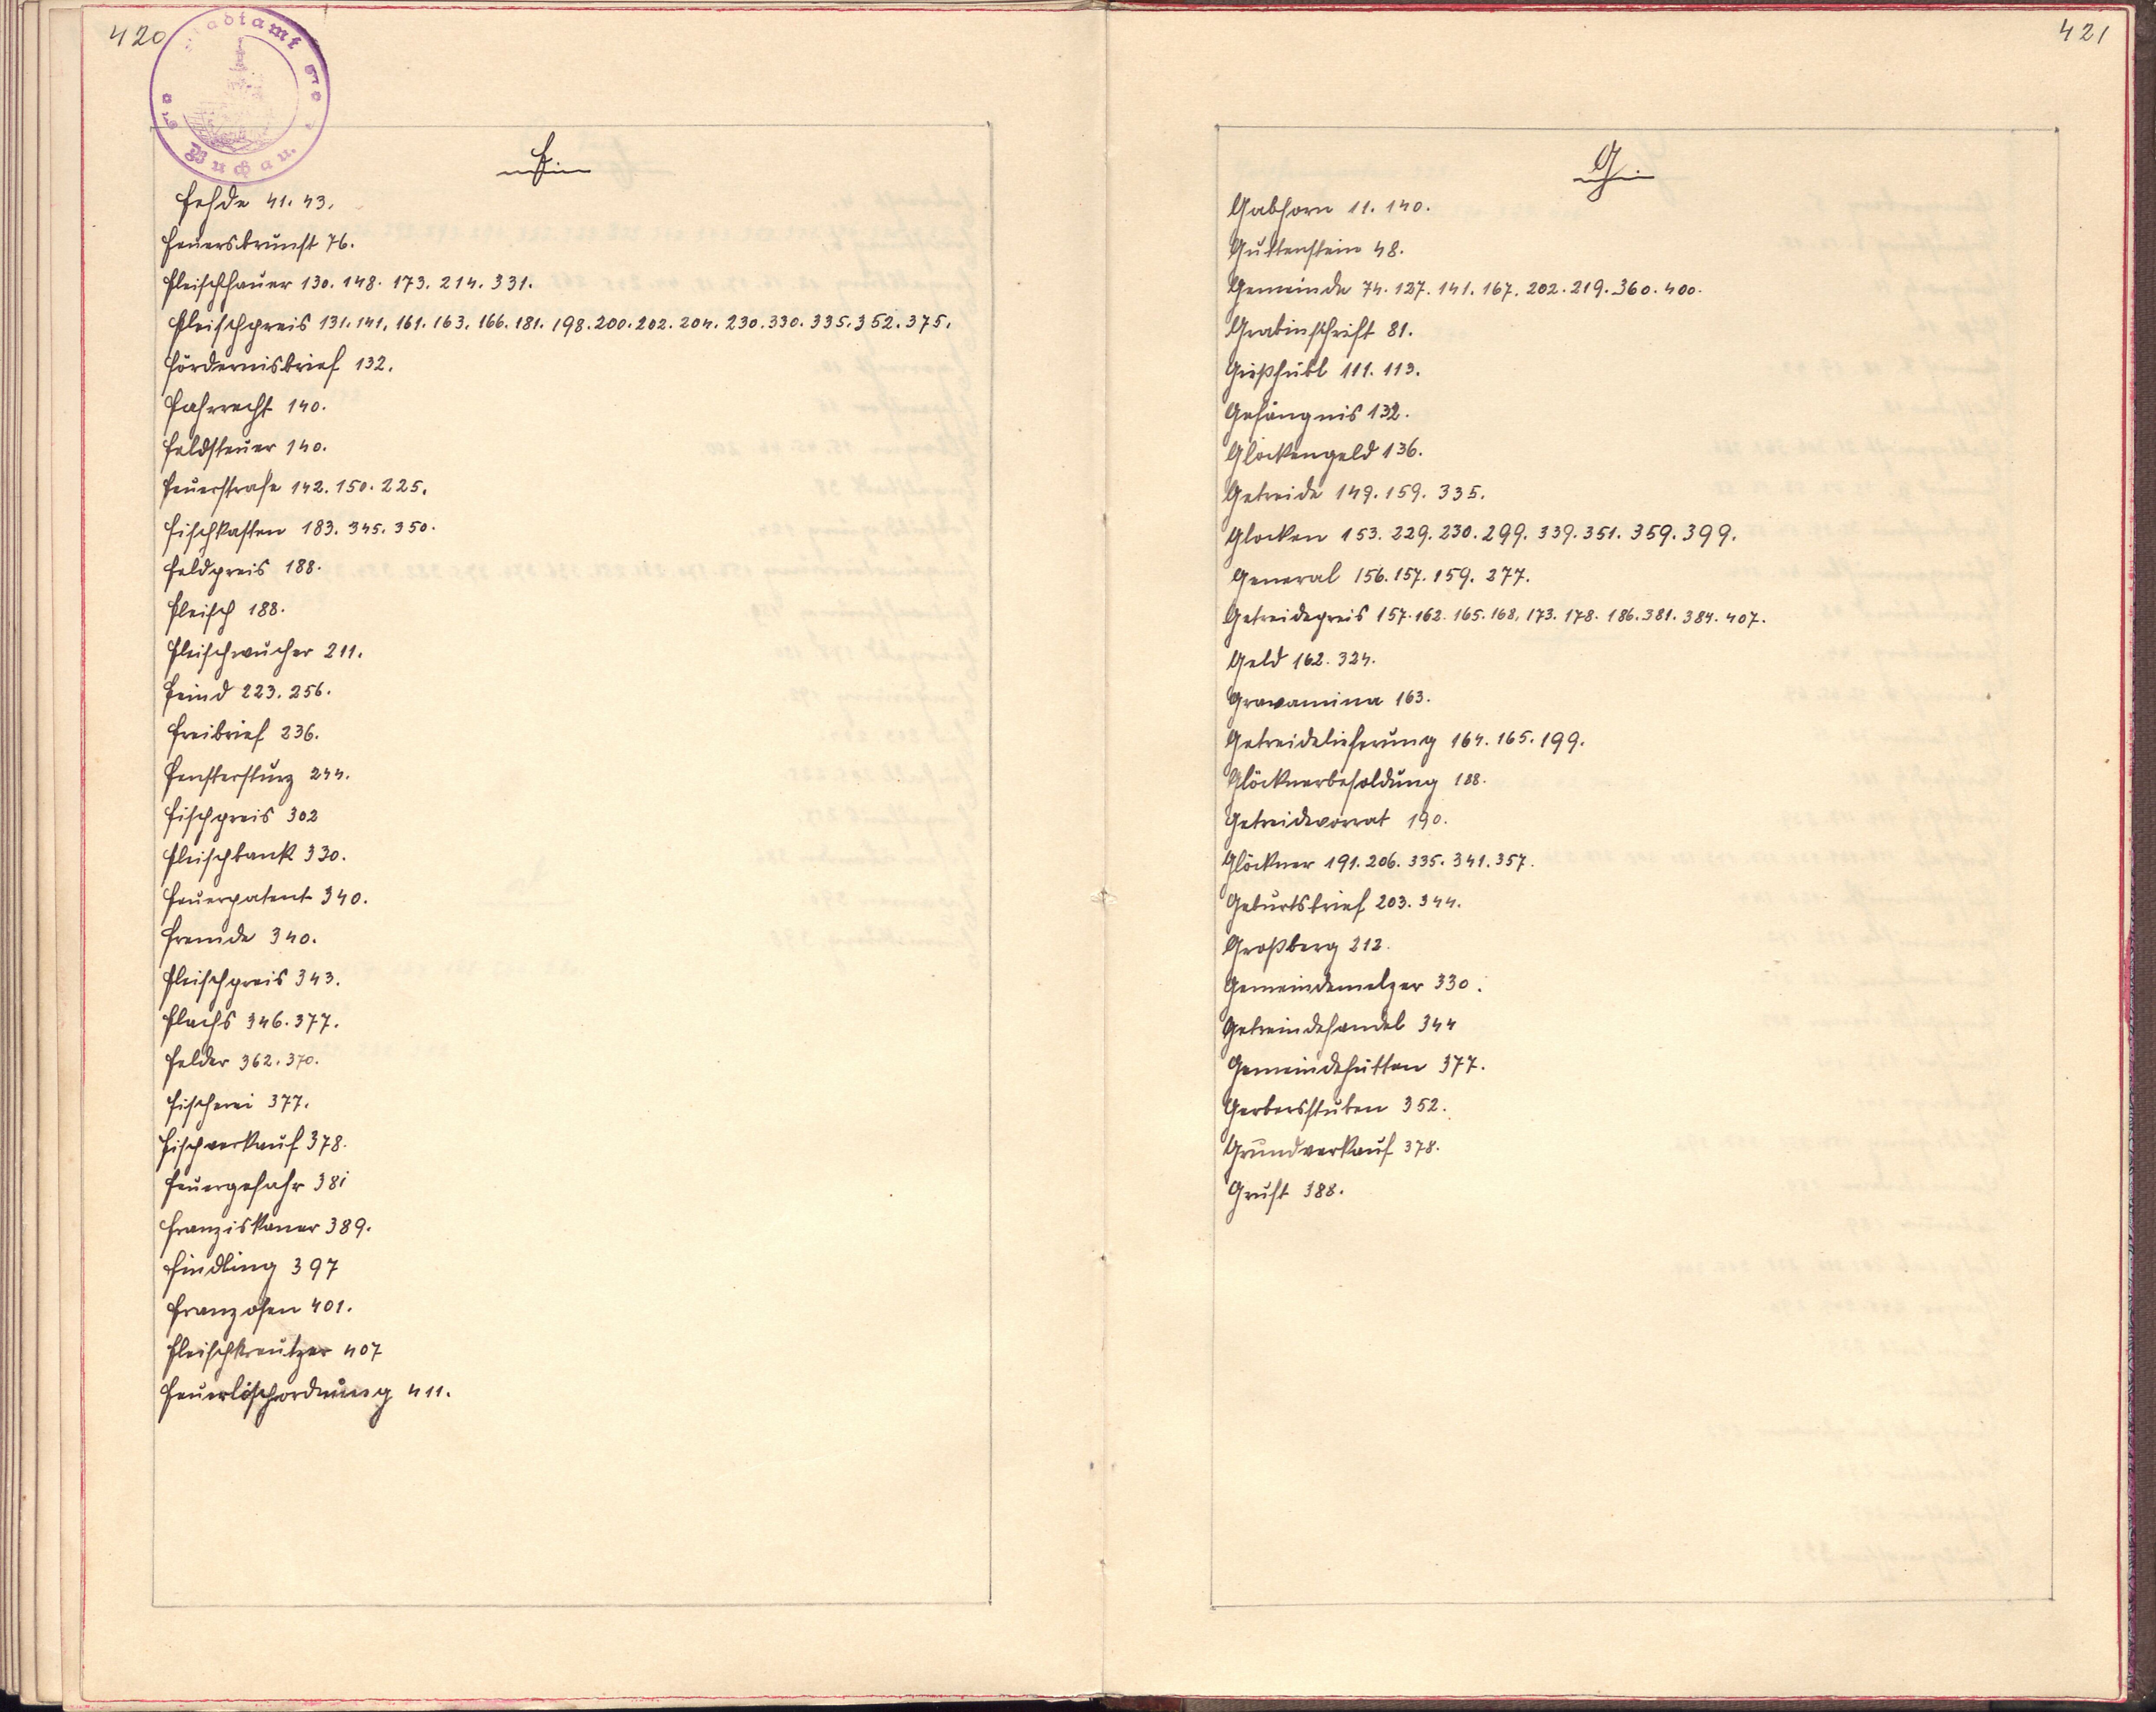 420
Stadtamt
Buchau.
F.
Fehde 41. 43.
Feuersbrunst 76.
Fleischhauer 130. 148. 173. 214. 331.
Fleischpreis 131. 141. 161. 163. 166. 181. 198. 200. 202. 204. 230. 330. 335. 352. 375.
Fördernisbrief 132.
Fahrrecht 140.
Feldsteuer 140.
Feuerstrafe 142. 150. 225.
Fischkasten 183. 345. 350.
Feldpreis 188.
Fleisch 188.
Fleischwucher 211.
Feind 223. 256.
Freibrief 236.
Fenstersturz 244.
Fischpreis 302
Fleischbank 330.
Feuerpatent 340.
Fremde 340.
Fleischpreis 343.
Flachs 346. 377.
Felder 362. 370.
Fischerei 377.
Fischverkauf 378.
Feuergefahr 381
Franziskaner 389.
Findling 397
Franzosen 401.
Fleischkreutzer 407
Feuerlöschordnung 411.
421
G.
Gabhorn 11. 140.
Guttenstein 48.
Gemeinde 74. 127. 141. 167. 202. 219. 360. 400.
Grabinschrift 81.
Gießhübl 111. 113.
Gefängnis 132.
Glockengeld 136.
Getreide 149. 159. 335.
Glocken 153. 229. 230. 299. 339. 351. 359. 399.
General 156. 157. 159. 277.
Getreidepreis 157. 162. 165. 168. 173. 178. 186. 381. 384. 407.
Geld 162. 324.
Gravamina 163.
Getreidelieferung 164. 165. 199.
Glöcknerbesoldung 188.
Getreidevorrat 190.
Glöckner 191. 206. 335. 341. 357.
Geburtsbrief 203. 344.
Großberg 212.
Gemeindemelzer 330.
Getreindehandel 344
Gemeindehütten 377.
Gerbersstuben 352.
Grundverkauf 378.
Gruft 388.